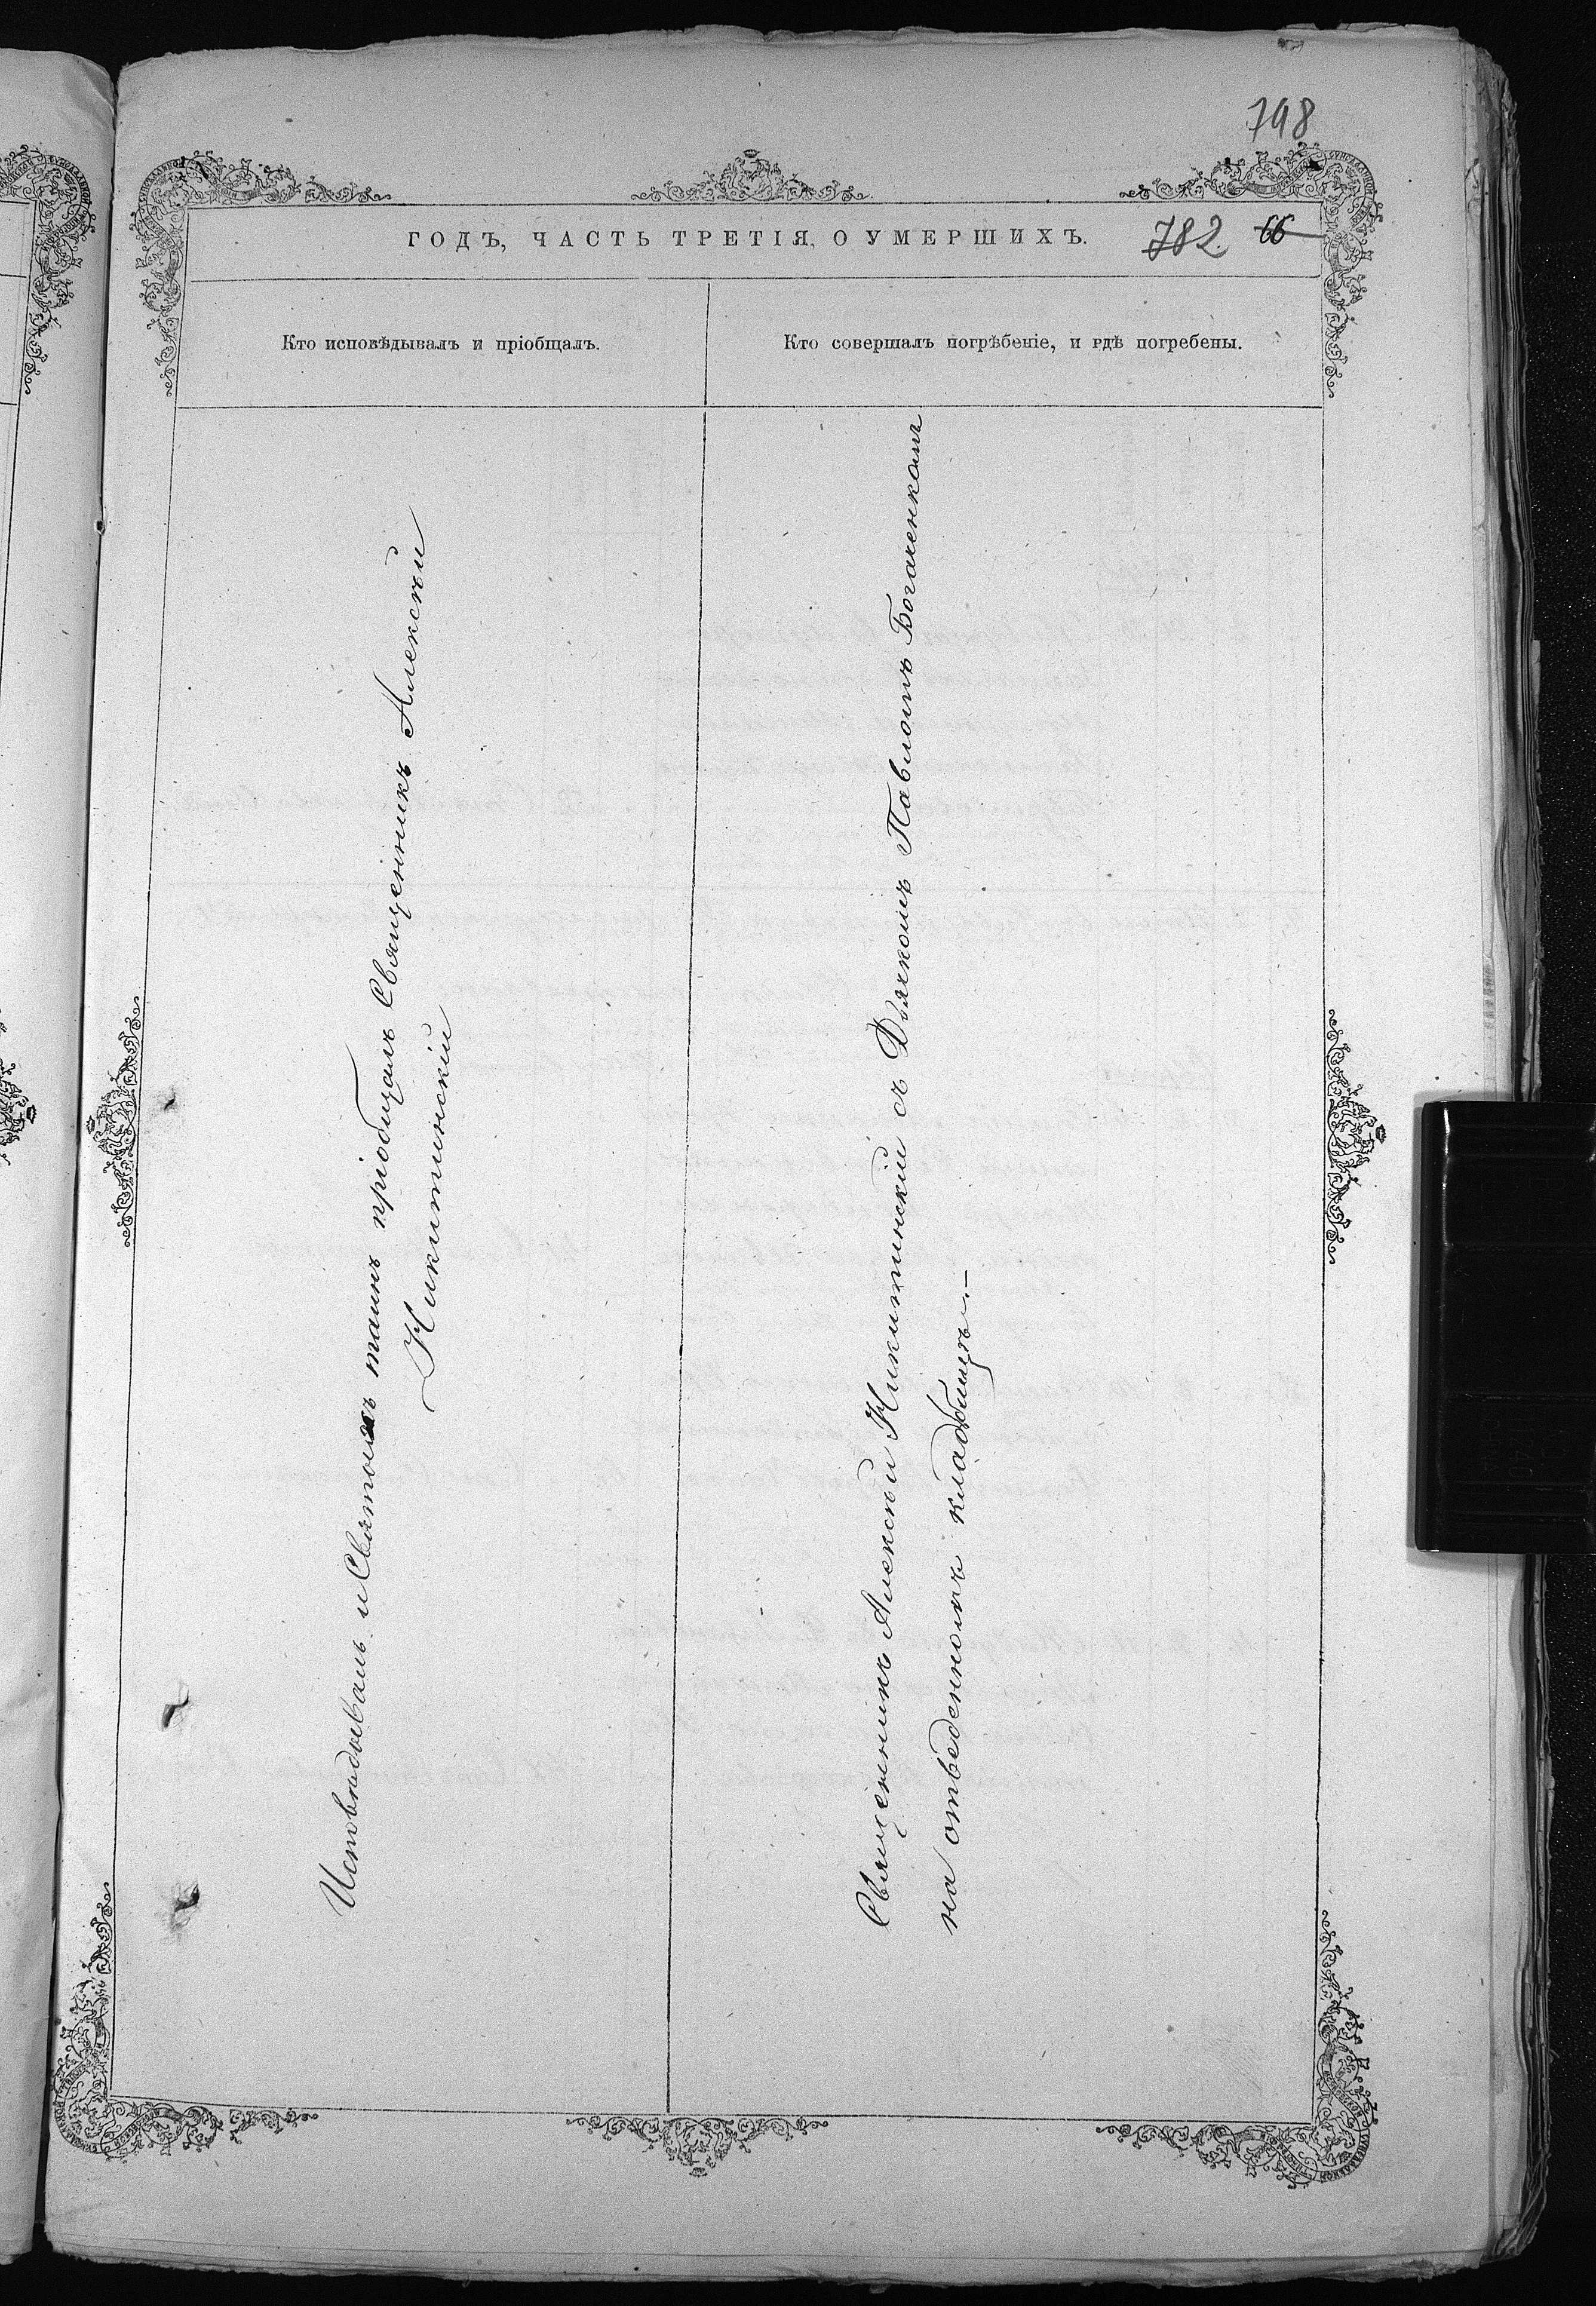 798
ГОДЪ, ЧАСТЬ ТРЕТІЯ, О УМЕРШИХЪ.
782 66
Кто исповѣдывалъ и пріобщалъ.
Кто совершалъ погрѣбеніе, и гдѣ погребены.
Исповѣдывалъ и Святыхъ таинъ пріобщалъ Священникъ Алексѣй
Никитинскій
Священникъ Алексѣй Никитинскій съ Дьячкомъ Павломъ Богаченкомъ
на отведенномъ кладбищѣ.—